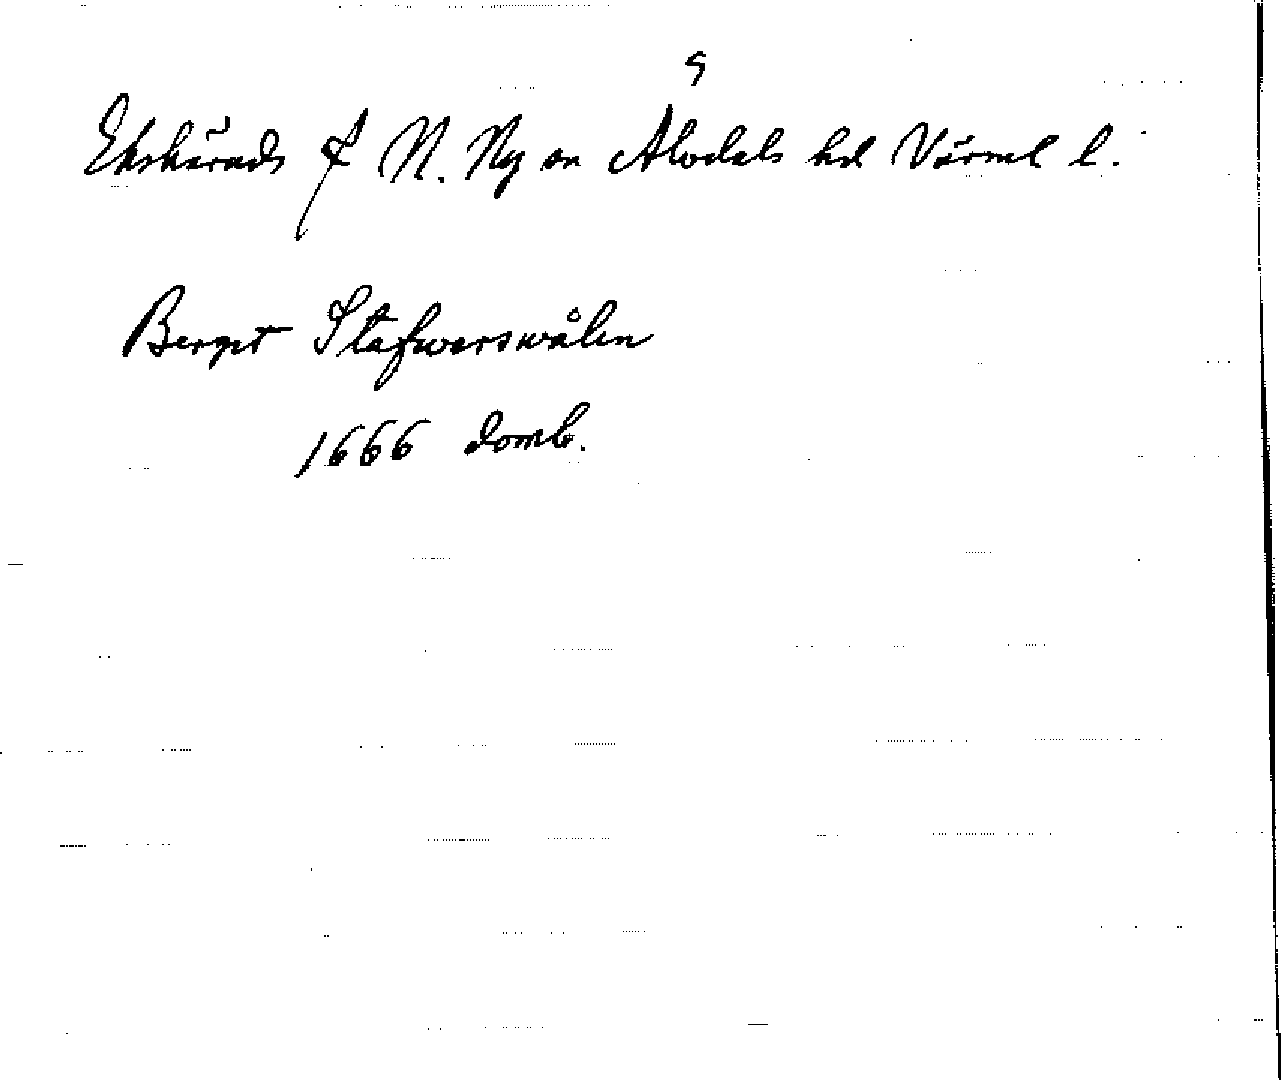 Ekshärads f N. Ny sn Älvdals hd Värml l.
Berget Stafwerswålen
1666 domb.